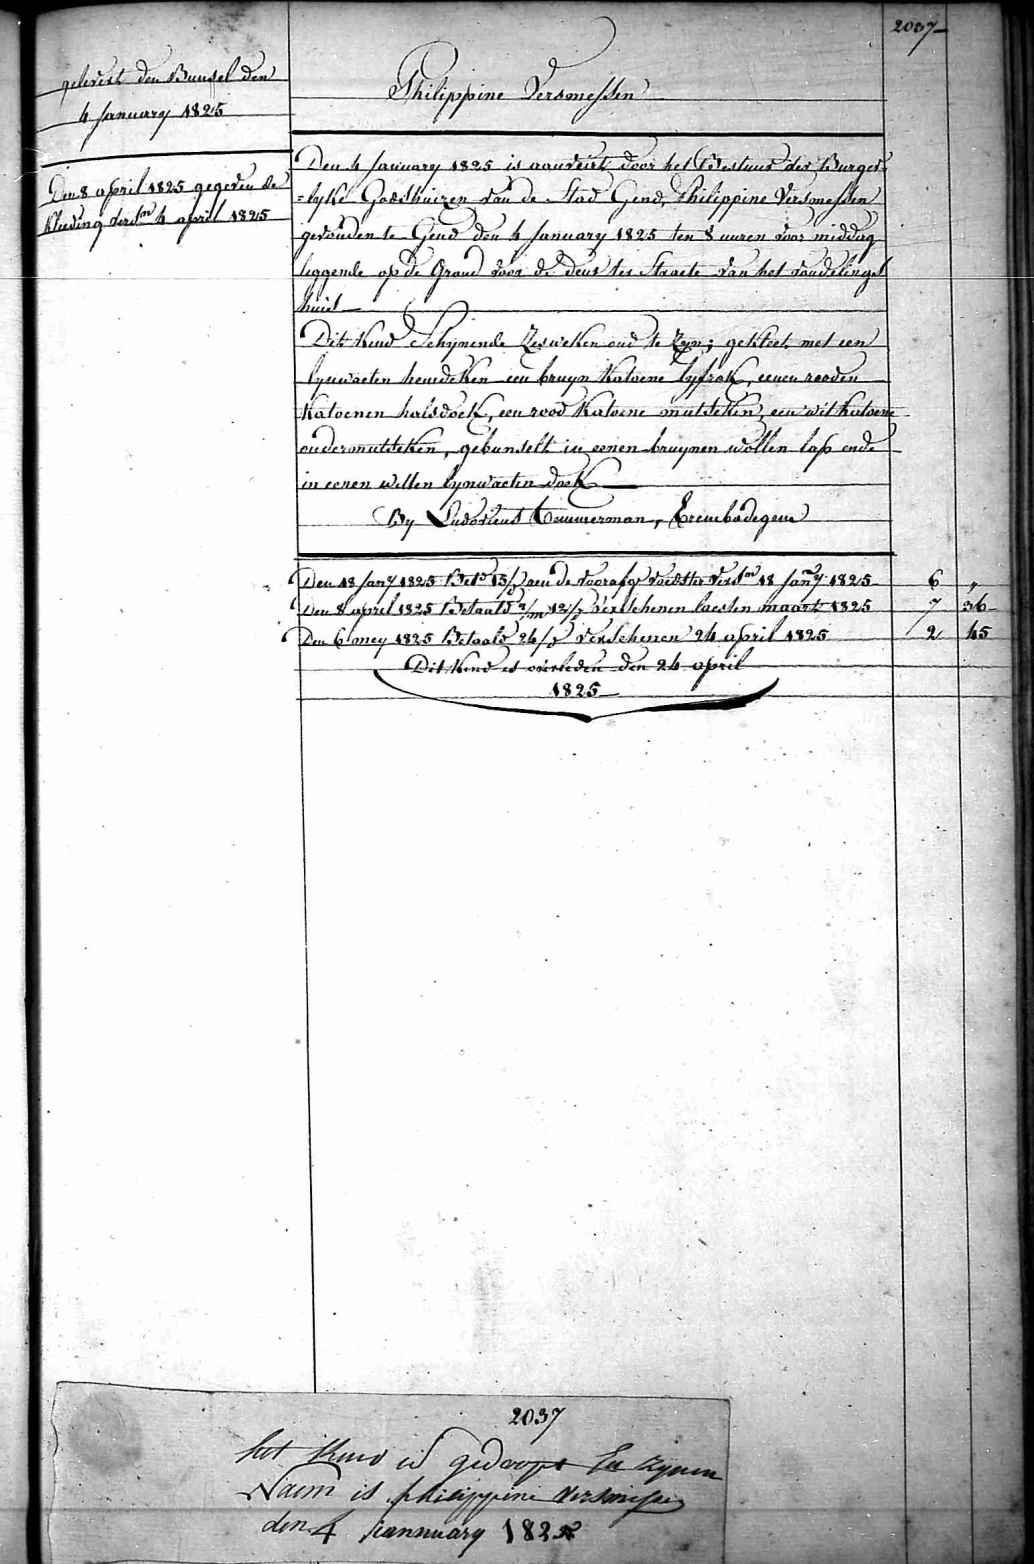 2037
gelevert den Bunsel den
4 January 1825
Den 8 april 1825 gegeven de
Kleeding verst 4 april 1825
Philippine Versmessen
Den 4 January 1825 is aanveirt door het Bestuur der Burger-
=lyke Godshuizen van de Stad Gend, Philippine Versmessen
gevonden te Gend den 4 January 1825 ten 8 uuren voor middag
leggende op de Grond voor de deur ter Straete van het vondelingel
huis
Dit Kind Schynende Zes weken oud te Zyn; gekleet met een
lynwaeten hemdeken een bruyn Katoene lyfrok, eenen rooden
Katoenen halsdoek, een rood Katoene mutseken, een wit Katoene
ondermutseken, gebunselt in eenen bruynen wollen lap ende
in eenen witten lynwaeten doek
By Ludovicus Temmerman, Erembodegem
Den 18 Jany 1825 Bet 15/ aen de voorafg voedster verst 18 Jany 1825 6 "
Den 8 april 1825 Betaald 2/m 12/ verschenen laesten maart 1825 7 36
Den 6 mey 1825 Betaald 24/ verschenen 24 april 1825 2 45
Dit Kind is overleden den 24 april
1825
2037
het Kind is gedoopt En Zynen
Naem is philippine Versmesse
den 4 Jannuary 1825